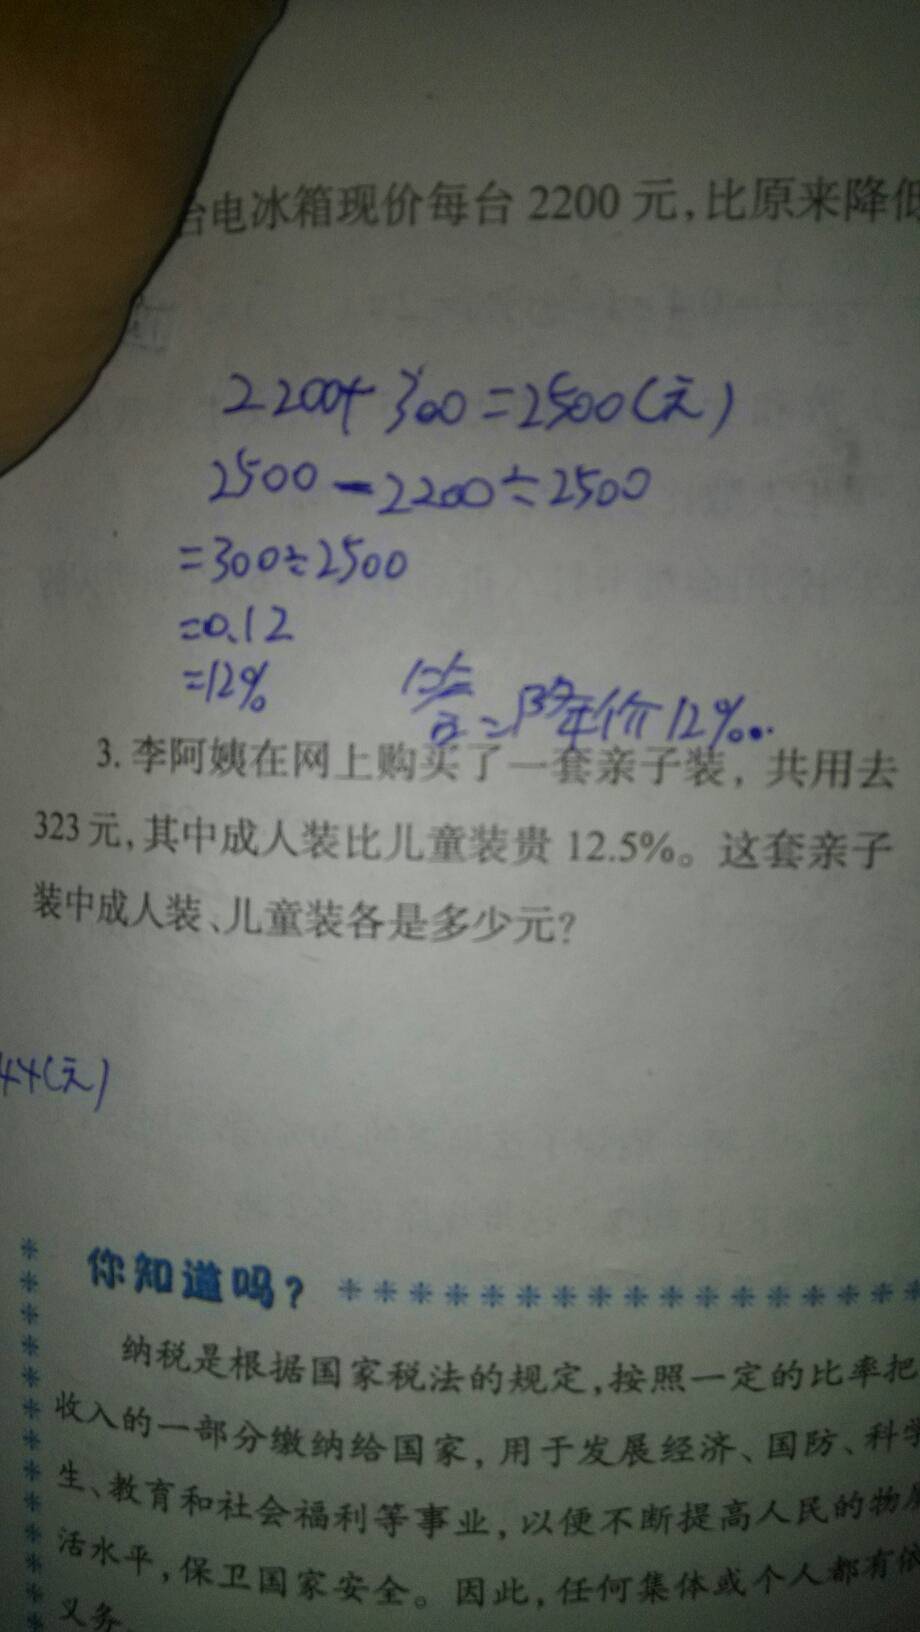 台电冰箱现价每台 2200 元，比原来降低
2200+300=2500(元)
2500-2200÷2500
=300÷2500
=0.12
=12%
答
降价12%.
3. 李阿姨在网上购买了一套亲子装，共用去
323元，其中成人装比儿童装贵 12.5%。这套亲子
装中成人装、儿童装各是多少元?
44(元)
你知道吗?
纳税是根据国家税法的规定，按照一定的比率把
收入的一部分缴纳给国家，用于发展经济、国防、科学
生、教育和社会福利等事业，以便不断提高人民的物质
活水平，保卫国家安全。因此，任何集体或个人都有依
义务